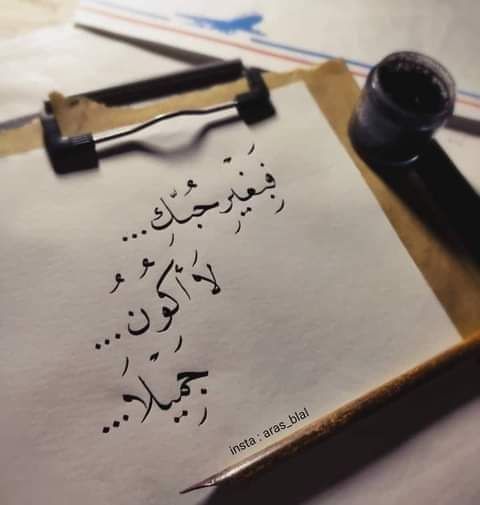 فبَِغَيْرِ حُبِّكِ...
لَا أَكُونُ...
جَمِيْلَاً...
insta : aras_blal